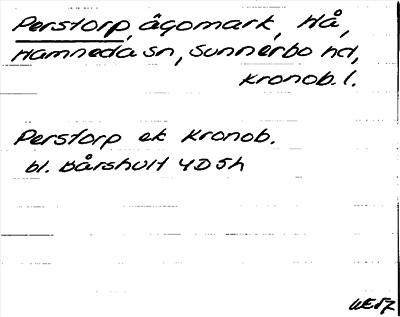 Perstorp, ägomark, Hå,
Hamneda sn, Sunnerbo hd,
Kronob. l.
Perstorp ek Kronob.
bl. Bårshult 4D5h